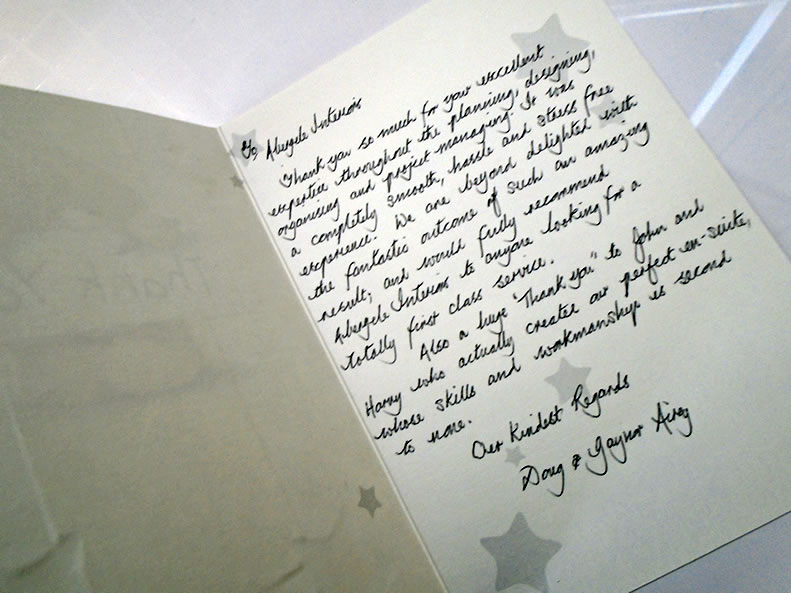 To, Abergele Interiors
Thank you so much for your excellent
expertise throughout the planning, designing,
organising and project managing. It was
a completely smooth, hassle and stress free
experience. We are beyond delighted with
the fantastic outcome of such an amazing
result, and would fully recommend
Abergele Interiors to anyone looking for a
totally first class service.
Also a huge "Thank you" to John and
Harry who actually created our perfect en-suite,
whose skills and workmanship is second
to none.
Our Kindest Regards
Doug & Gaynor Airey